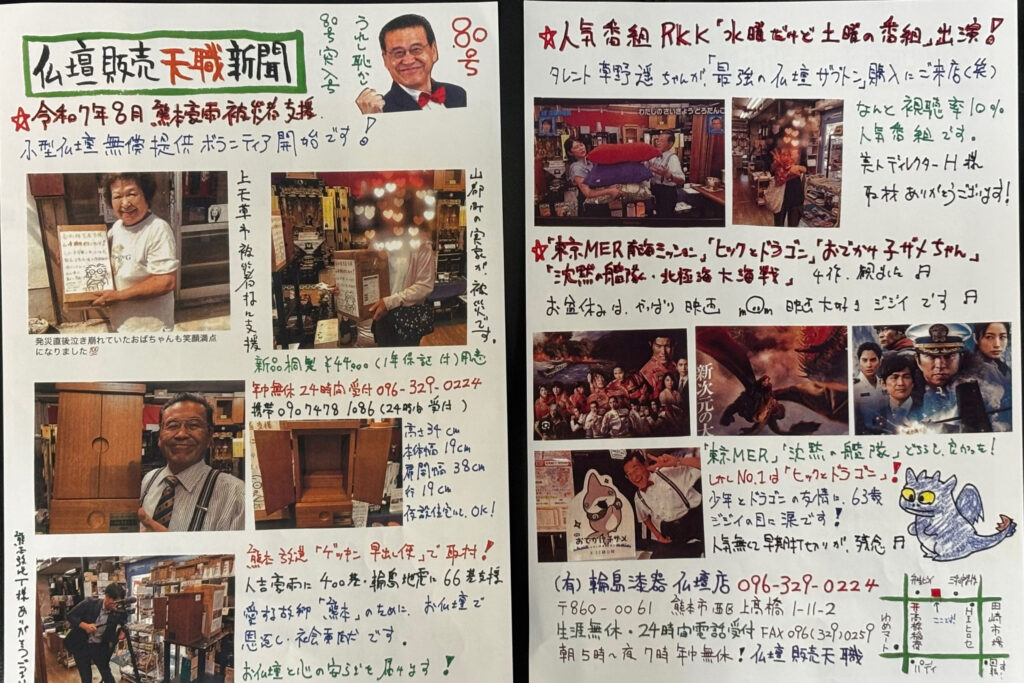 仏壇販売天職新聞
80号突入号
うれし恥かし
80号
☆令和7年8月 熊本豪雨被災者支援
小型仏壇無償提供ボランティア開始です!
上天草市被災者様に支援
山都町の実家が被災です。
発災直後泣き崩れていたおばちゃんも笑顔満点
になりました
新品桐製 ¥44,000 (1年保証付)用意
年中無休24時間受付 096-329-0224
携帯 090 7478 1086 (24時間受付)
高さ34cm
本体幅19cm
扉開幅38cm
行19cm
仮設住宅にOK!
熊本放送「ゲッキン早出し便」で取材!
人吉豪雨に400基・輪島地震に66基支援
愛する故郷「熊本」のために、お仏壇で
恩返し・社会貢献です。
お仏壇と心の安らぎを届けます!
☆人気番組RKK「水曜だけど土曜の番組」出演!
タレント草野遥ちゃんが「最強の仏壇ザブトン」購入にご来店(笑)
わたしのさいきょうどうだんこ
なんと視聴率10%
人気番組です。
美人ディレクターH様
取材ありがとうございます!
☆「東京MER南海ミッション」「ヒックとドラゴン」「おでかけ子ザメちゃん」
「沈黙の艦隊・北極海大海戦」4作、観ました
お盆休みは、やっぱり映画 映画大好きジジイです
新次元の
おでかけ子ザメ
「東京MER」「沈黙の艦隊」どちらも良かった!
しかしNo.1は「ヒックとドラゴン」!
少年とドラゴンの友情に、63歳
ジジイの目に涙です!
人気無くて早期打ち切りが、残念
(有)輪島漆器仏壇店 096-329-0224
〒860-0061 熊本市西区上高橋1-11-2
生涯無休・24時間電話受付 FAX 096(329)0259
朝5時〜夜7時 年中無休!仏壇販売天職
ここだ!
田崎市場
ゆめマート